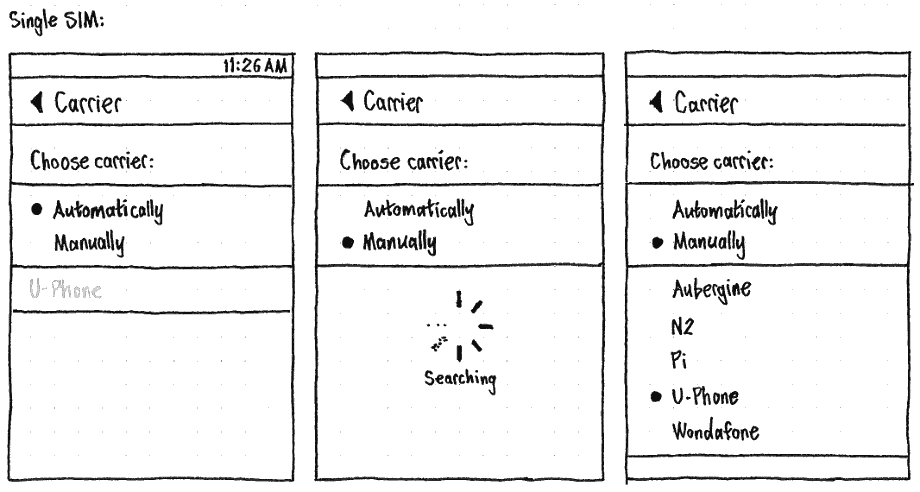 Single SIM:
11:26 AM
Carrier
Choose carrier:
Automatically
Manually
U-Phone
Carrier
Choose carrier:
Automatically
Manually
Searching
Carrier
Choose carrier:
Automatically
Manually
Aubergine
N2
Pi
U-Phone
Wondafone